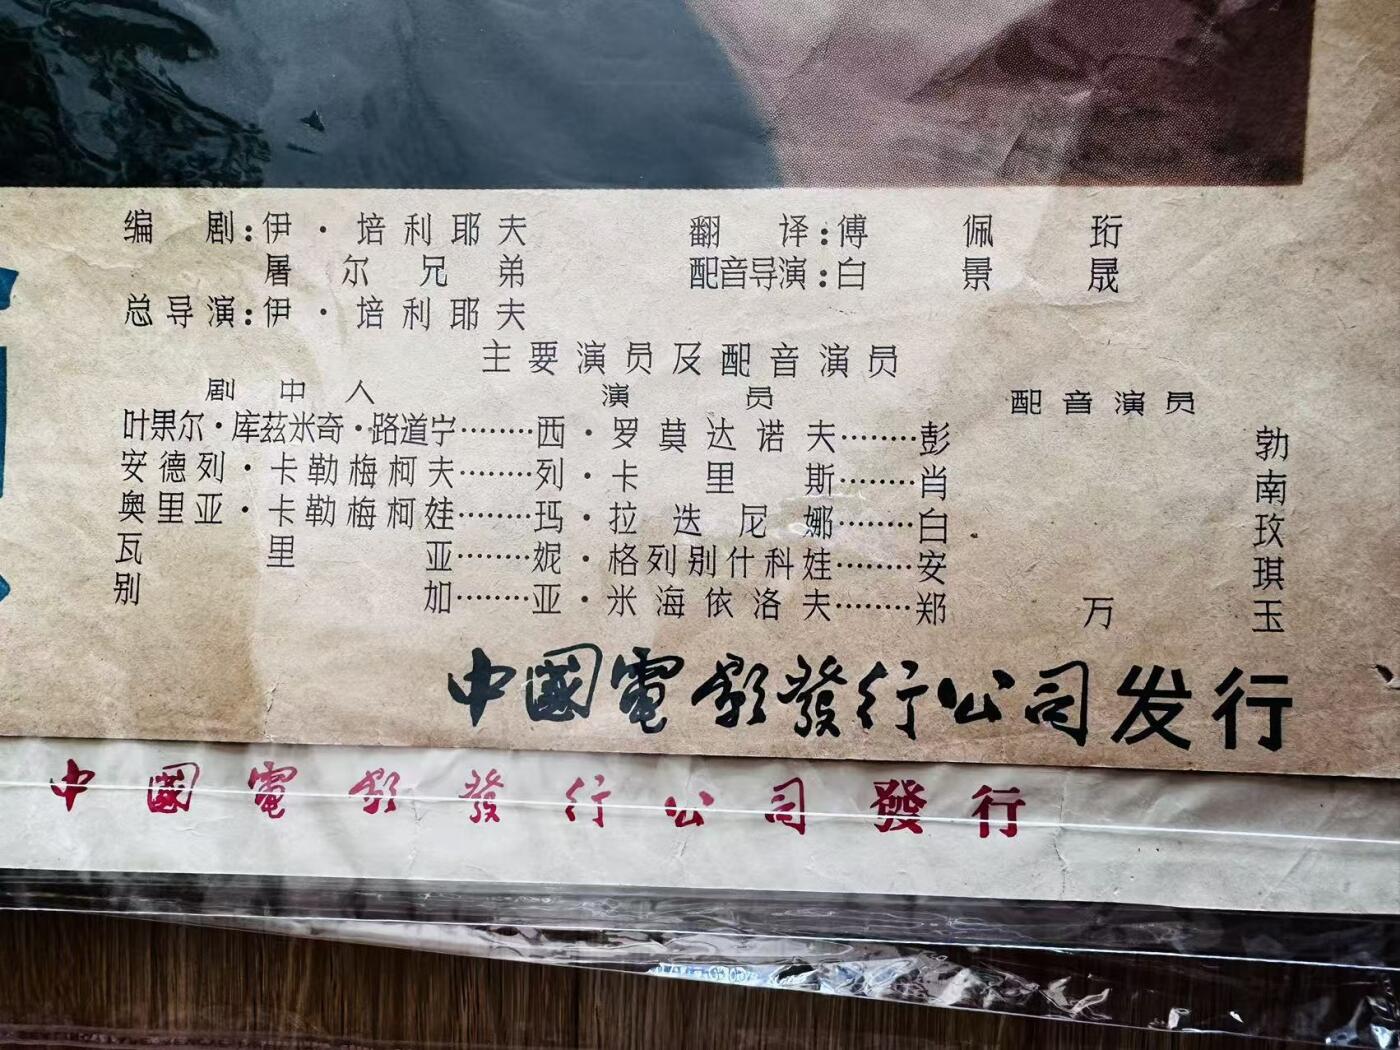 编剧:伊·培利耶夫 翻译:傅佩珩
屠尔兄弟 配音导演:白景晟
总导演:伊·培利耶夫
主要演员及配音演员
剧中人 演员 配音演员
叶果尔·库兹米奇·路道宁········西·罗莫达诺夫········彭勃
安德列·卡勒梅柯夫········列·卡里斯········肖南
奥里亚·卡勒梅柯娃········玛·拉迭尼娜········白玫
瓦里亚········妮·格列别什科娃········安琪
别加········亚·米海依洛夫········郑万玉
中國電影發行公司发行
中國電影發行公司發行